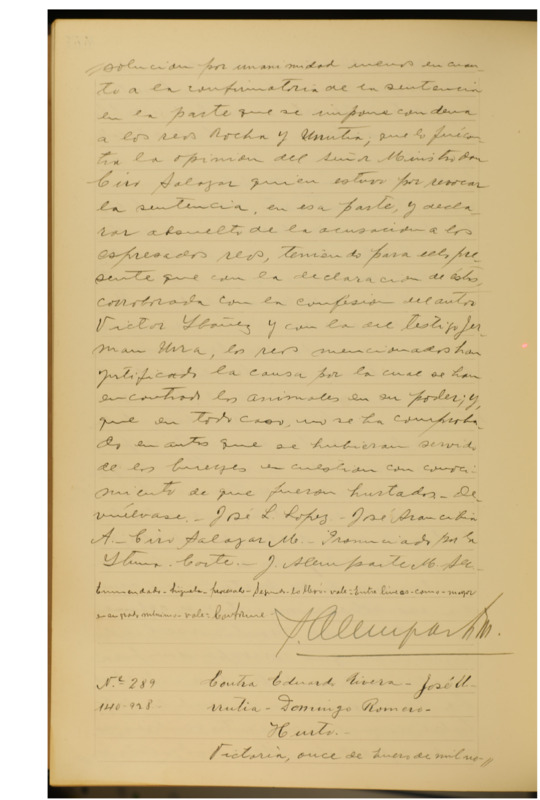 solucion por unanimidad menos en cuan-
to a la confirmatoria de la sentencia
en la parte que se impone condena
a los reos Rocha y Urrutia, que lo fué con-
tra la opinion del señor Ministro don
Ciro Salazar quien estuvo por revocar
la sentencia, en esa parte, y decla-
rar absuelto de la acusacion a los
espresados reos, teniendo para ello pre-
sente que con la declaracion de éstos,
corroborada con la confesion del autor
Victor Ybáñez y con la del testigo Jer-
man Urra, los reos mencionados han
justificado la causa por la cual se han
encontrado los animales en su poder; y,
que en todo caso, no se ha comproba-
do en autos que se hubieran servido
de los bueyes en cuestion con conoci-
miento de que fueran hurtados - De-
vuélvase. - José L. Lopez - José Arancibia
A. - Ciro Salazar M. - Pronunciado por la
Iltma. Corte. - J. Alemparte M. Sec.
Enmendado - - vale: Entre líneas - como - mayor
en su grado mínimo - vale: Conforme
J. Alemparte M.
N.º 289
1410-928
Contra Eduardo Rivera - José U-
rrutia - Domingo Romero -
Hurto. -
Victoria, once de Enero de mil no-